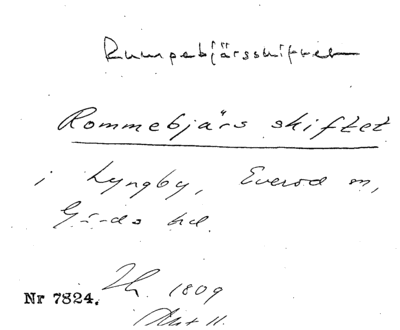 Rumpebjärsskiftet
Rommebjärs skiftet
i Lyngby, Everöd sn,
Gärds hd.
Nr 7824. 1809